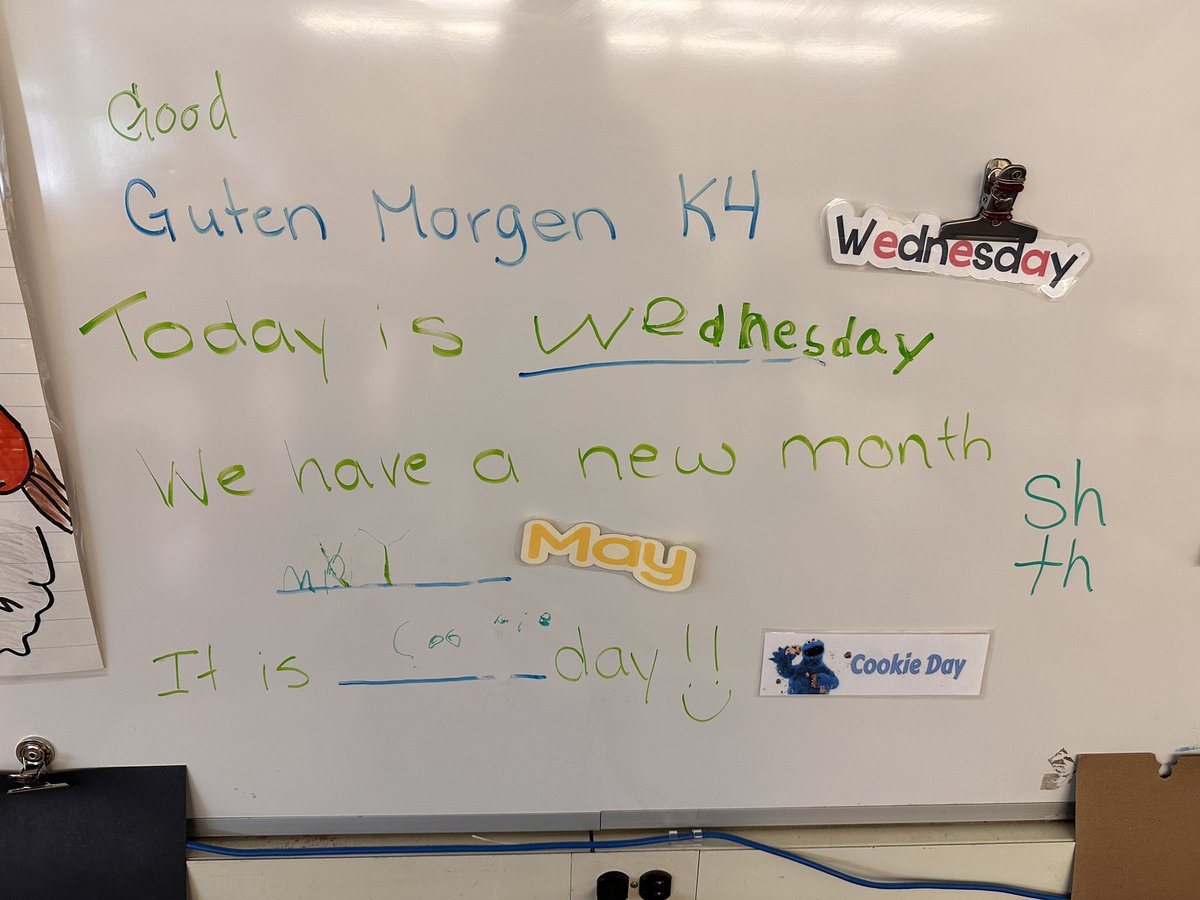 Good
Guten Morgen K4
Wednesday
Today is Wednesday
We have a new month
Sh
th
May
It is day!!
Cookie Day